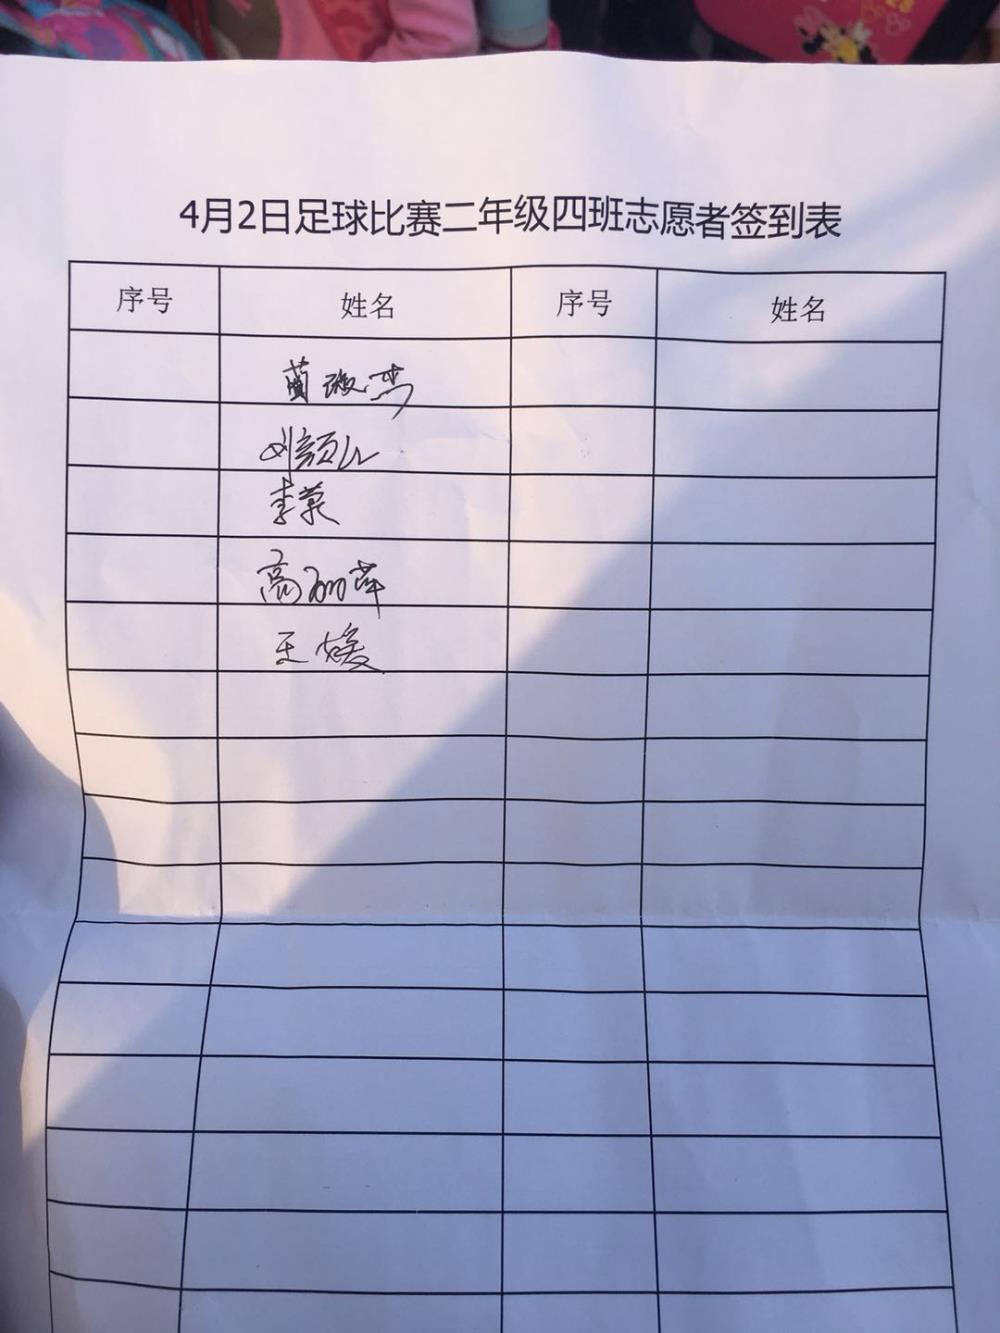 4月2日足球比赛二年级四班志愿者签到表
序号 姓名 序号 姓名
李蒙
高丽萍
王媛